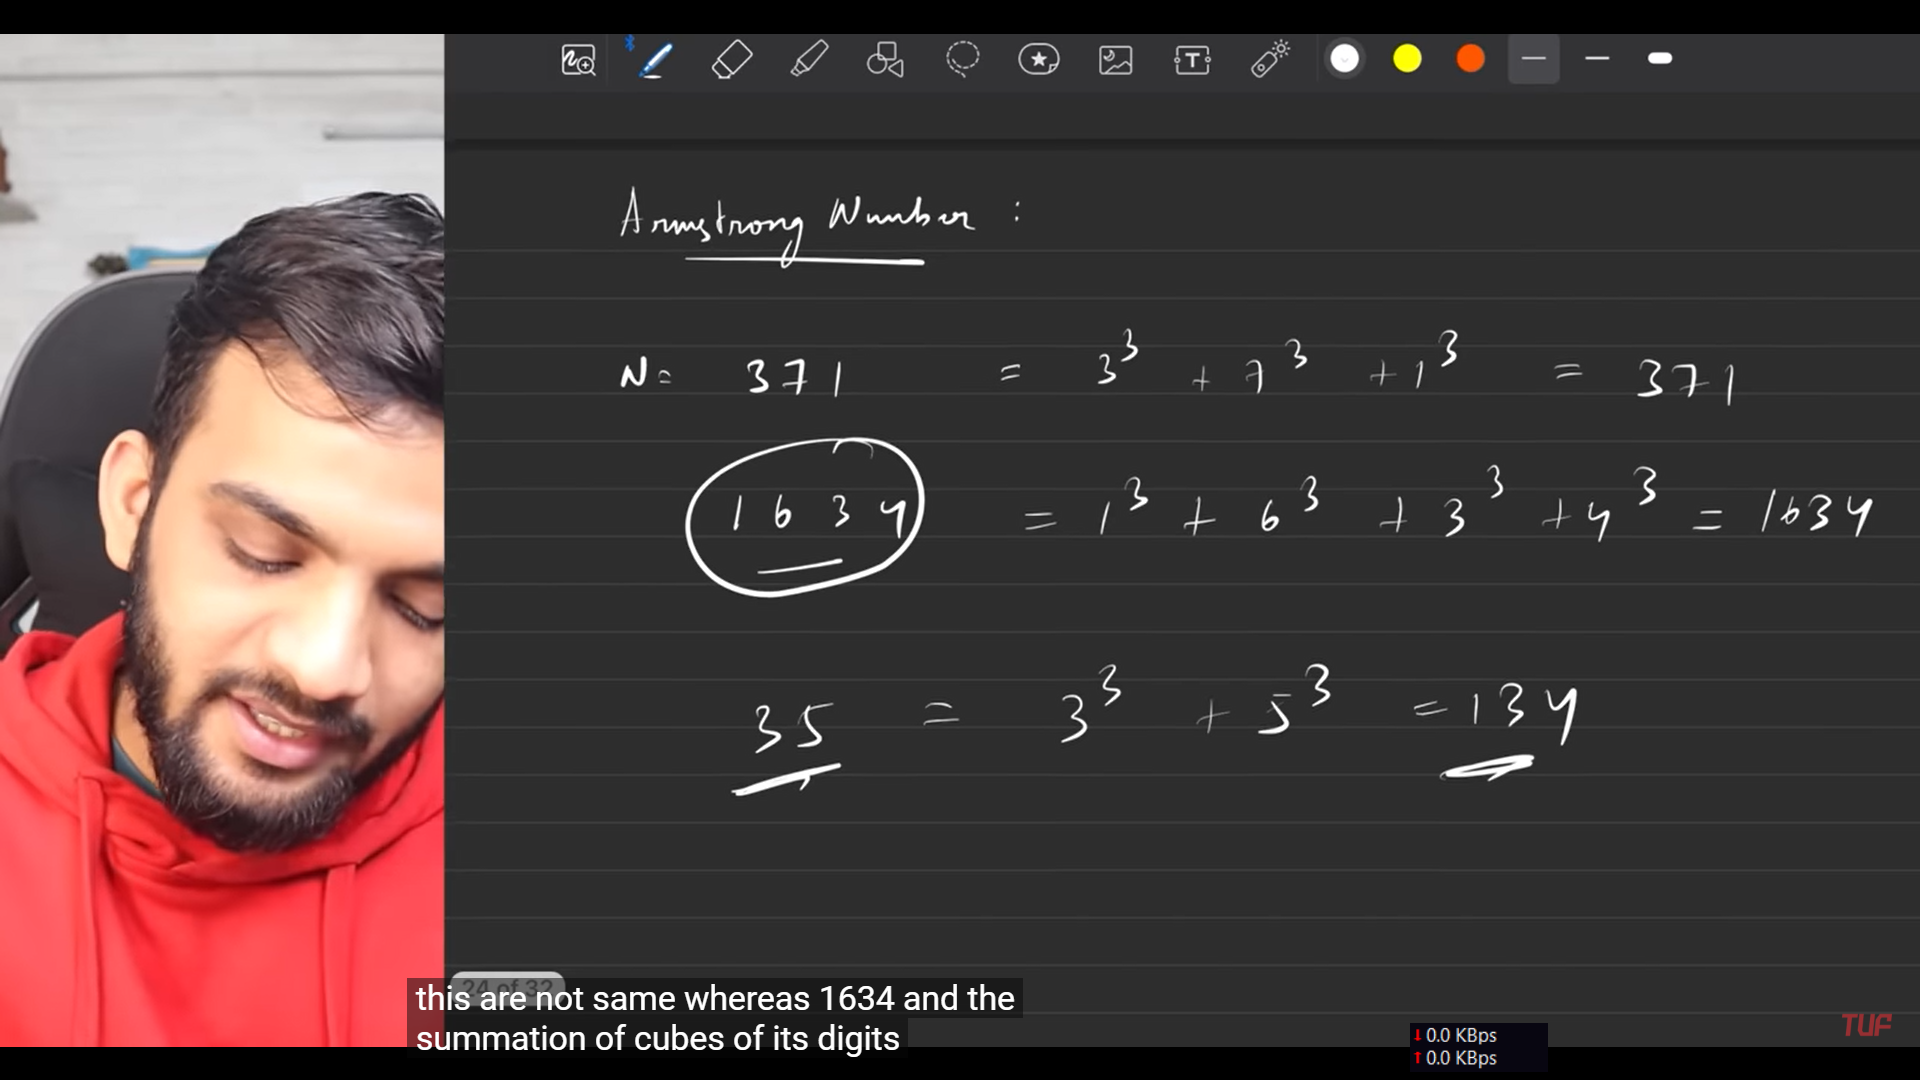 Armstrong Number :
N = 371 = 3³ + 7³ + 1³ = 371
1634 = 1³ + 6³ + 3³ + 4³ = 1634
35 = 3³ + 5³ = 134
24 of 32
this are not same whereas 1634 and the
summation of cubes of its digits
TUF
↓ 0.0 KBps
↑ 0.0 KBps